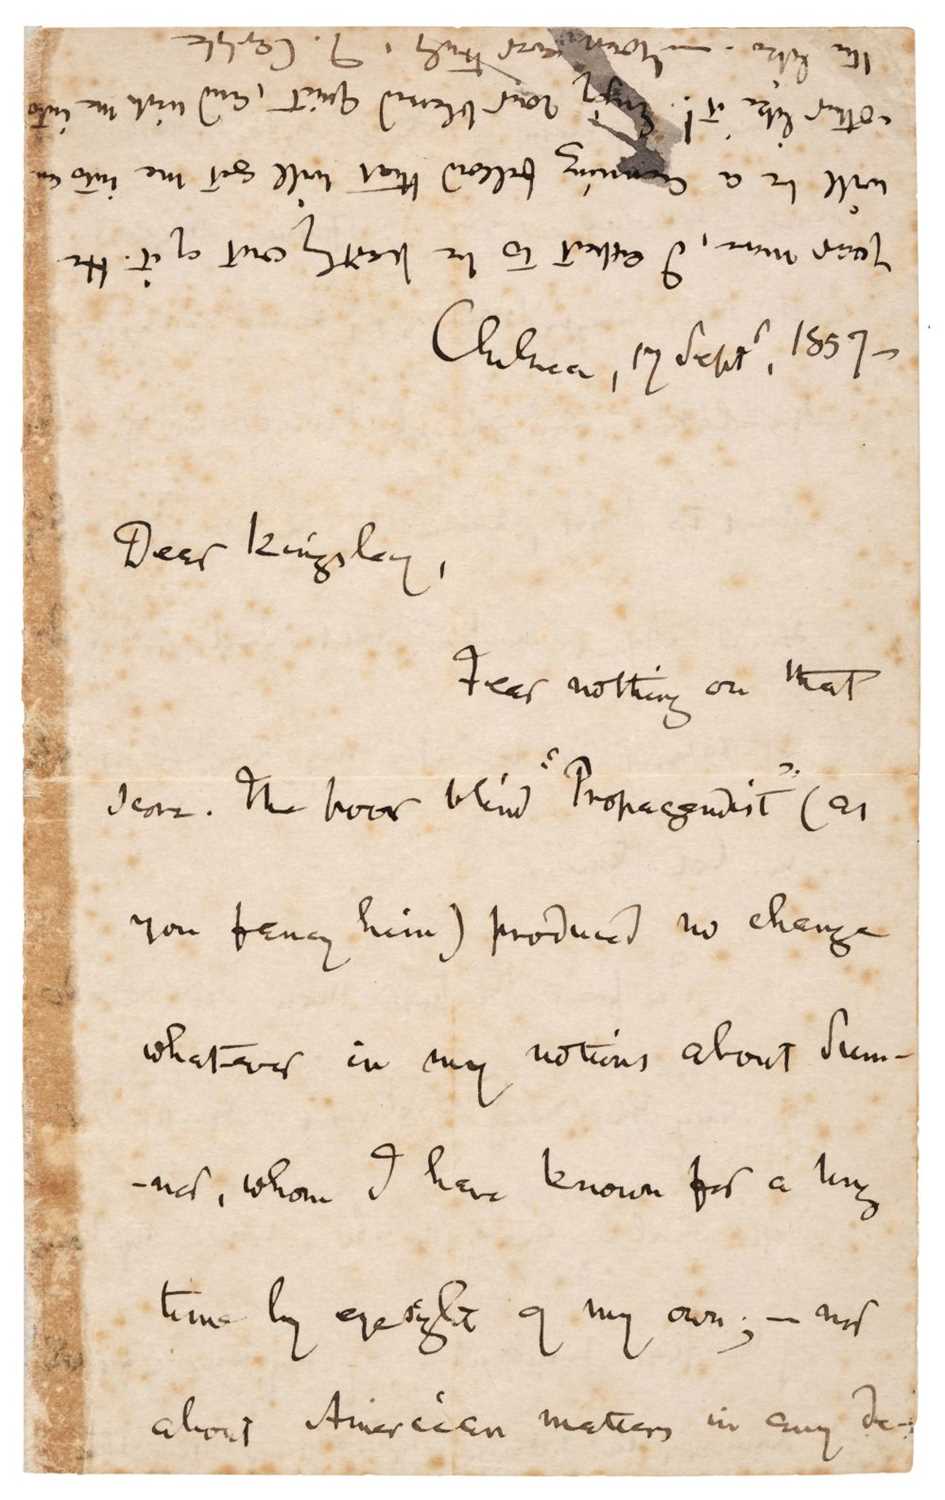 Chelsea, 17 Septr, 1857–
Dear Kingsley,
Fear nothing on that
score. The poor blind "Propagandist" (as
you fancy him) produced no change
whatever in my notions about Sum-
-ner, whom I have known for a long
time by eyesight of my own; — nor
about American matters in any de-
year more, I expect to be out of it.
will be a cunning fellow that will get me into an-
-other like it! Enjoy your blessed quiet, and wish me into
the like. — Yours ever truly, T. Carlyle